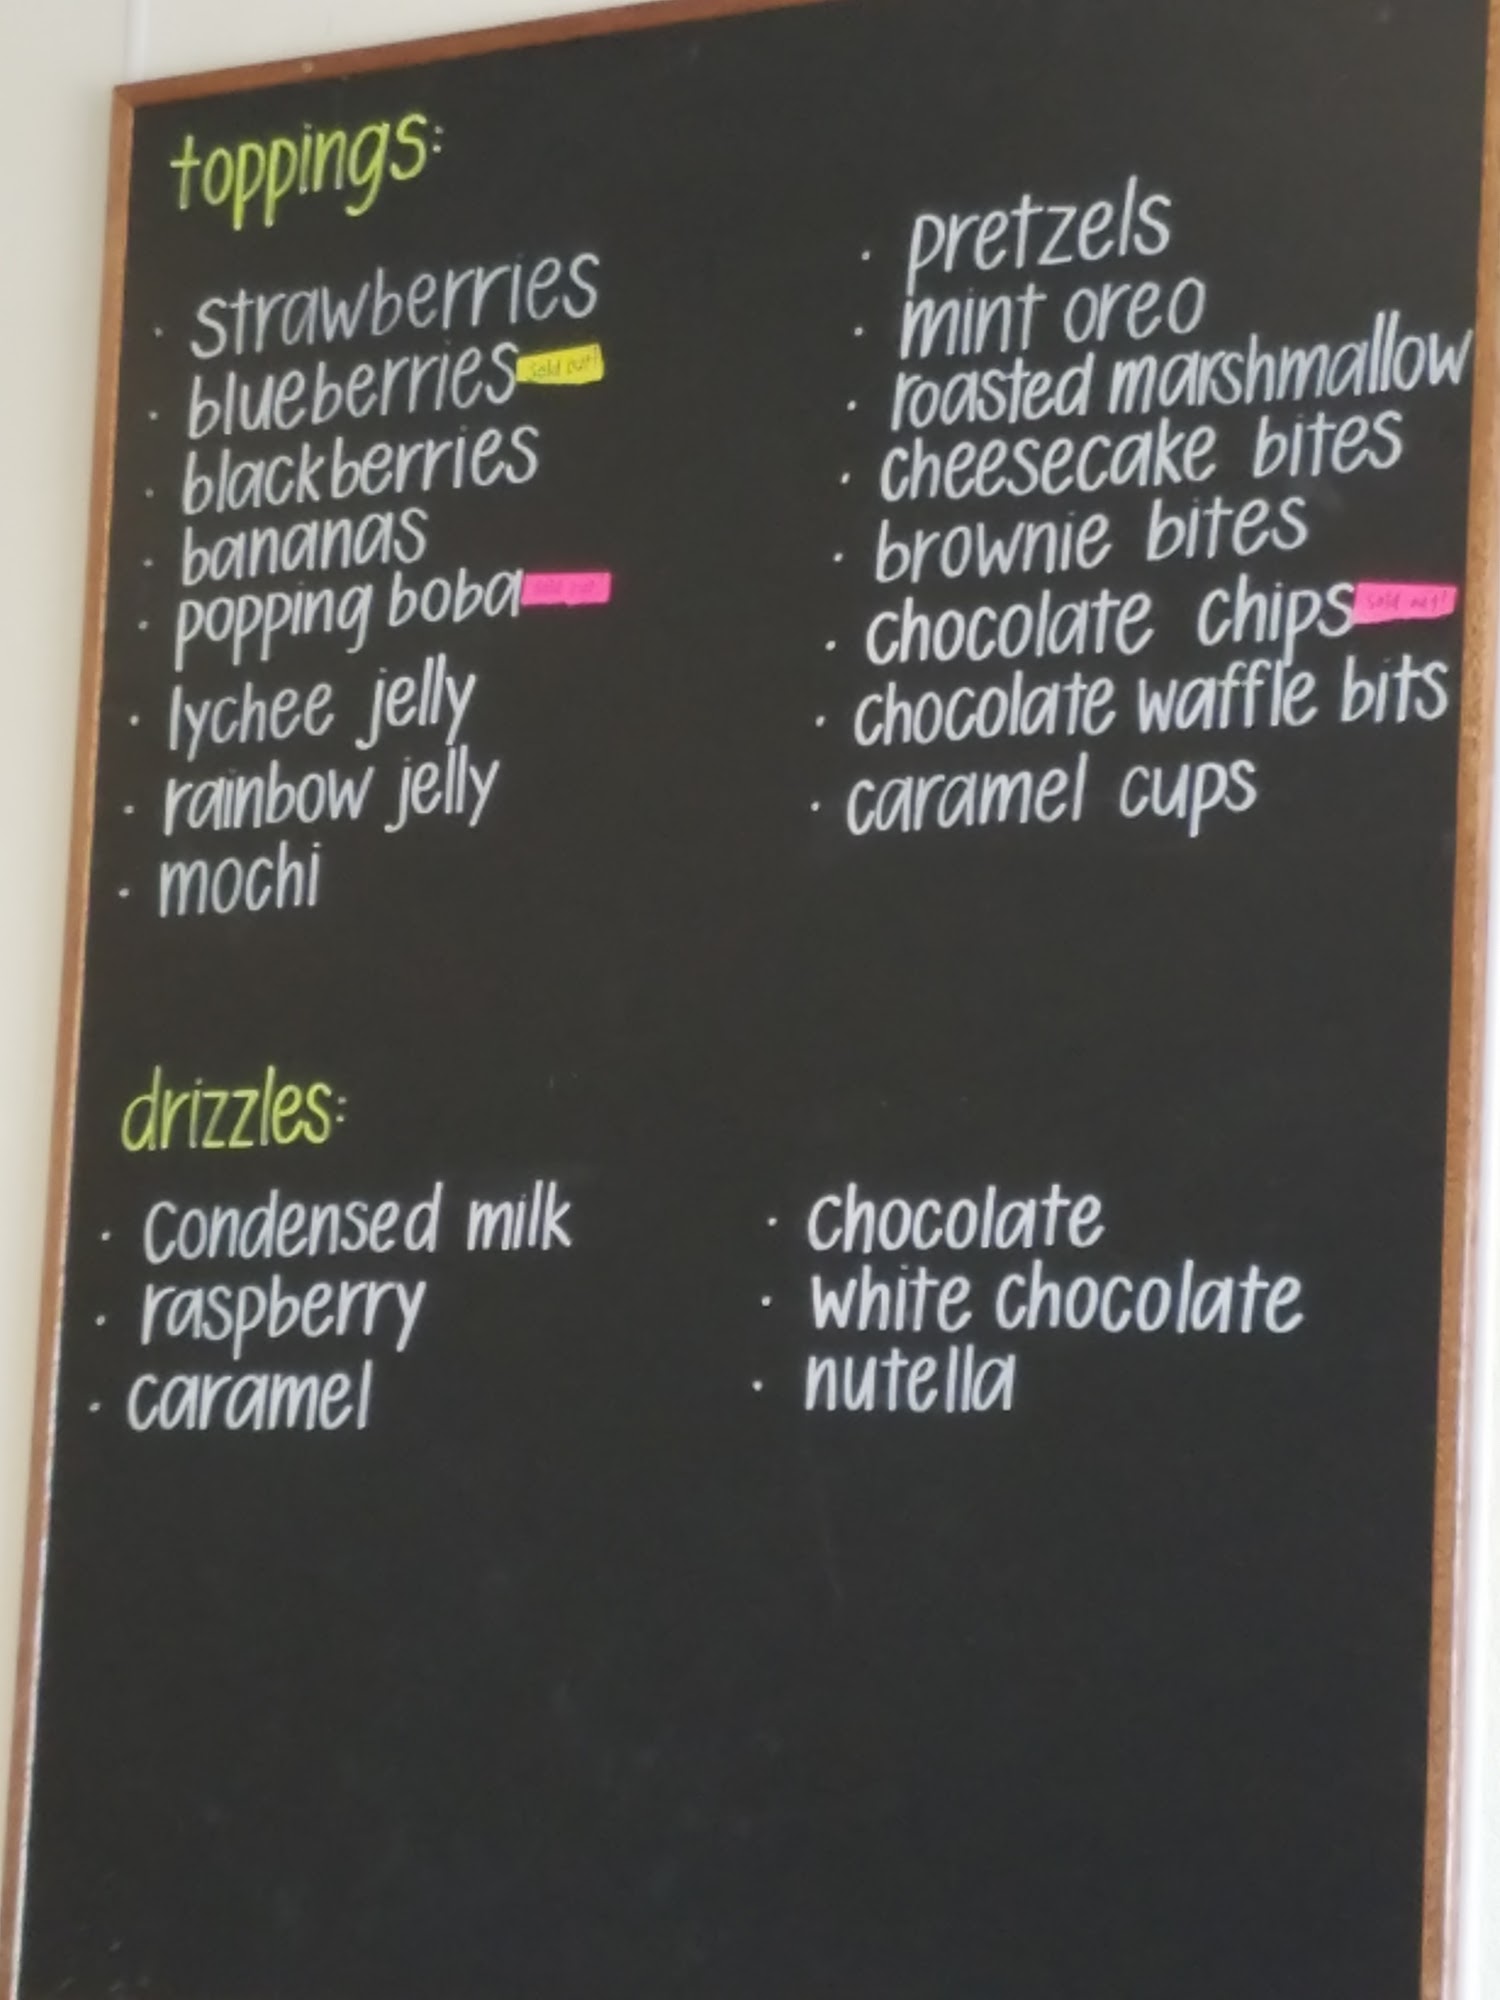 toppings:
· strawberries
· blueberries sold out!
· blackberries
· bananas
· popping boba sold out
· lychee jelly
· rainbow jelly
· mochi
· pretzels
· mint oreo
· roasted marshmallow
· cheesecake bites
· brownie bites
· chocolate chips sold out!
· chocolate waffle bits
· caramel cups
drizzles:
· condensed milk
· raspberry
· caramel
· chocolate
· white chocolate
· nutella